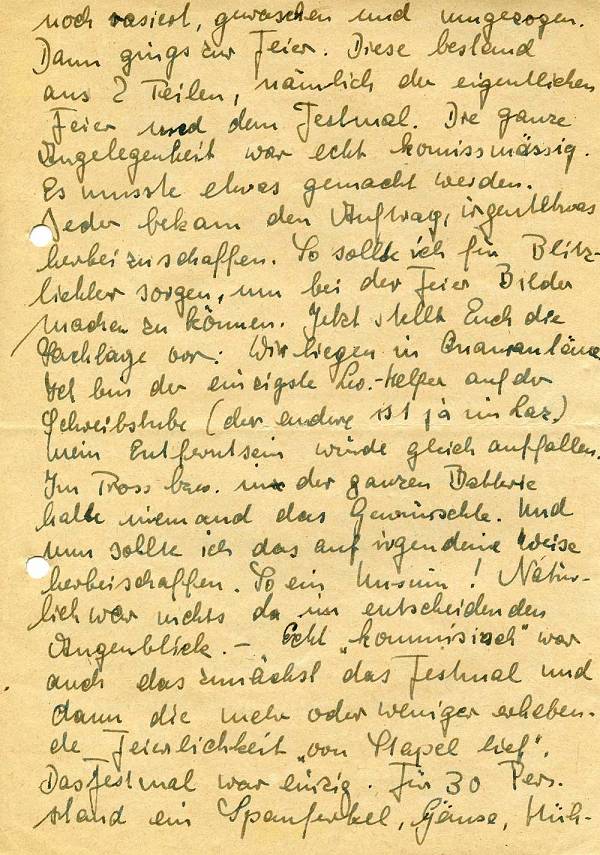 noch rasiert, gewaschen und umgezogen.
Dann gings zur Feier. Diese bestand
aus 2 Teilen, nämlich der eigentlichen
Feier und dem Festmal. Die ganze
Angelegenheit war echt komissmässig.
Es musste etwas gemacht werden.
Jeder bekam den Auftrag, irgendetwas
herbeizuschaffen. So sollte ich für Blitz-
lichter sorgen, um bei der Feier Bilder
machen zu können. Jetzt stellt Euch die
Sachlage vor: Wir liegen in Quarantäne
Ich bin der einzigste Lw.-Helfer auf der
Schreibstube (der andere ist ja im Laz.)
mein Entferntsein würde gleich auffallen.
Im Tross bzw. in der ganzen Batterie
hatte niemand das Gewünschte. Und
nun sollte ich das auf irgendeine Weise
herbeischaffen. So ein Unsinn! Natür-
lich war nichts da im entscheidenden
Augenblick. - Echt "kommisisch" war
auch das zunächst das Festmal und
dann die mehr oder weniger erheben-
de Feierlichkeit "von Stapel lief".
Das Festmal war einzig. Für 30 Pers.
stand ein Spanferkel, Gänse, Hüh-